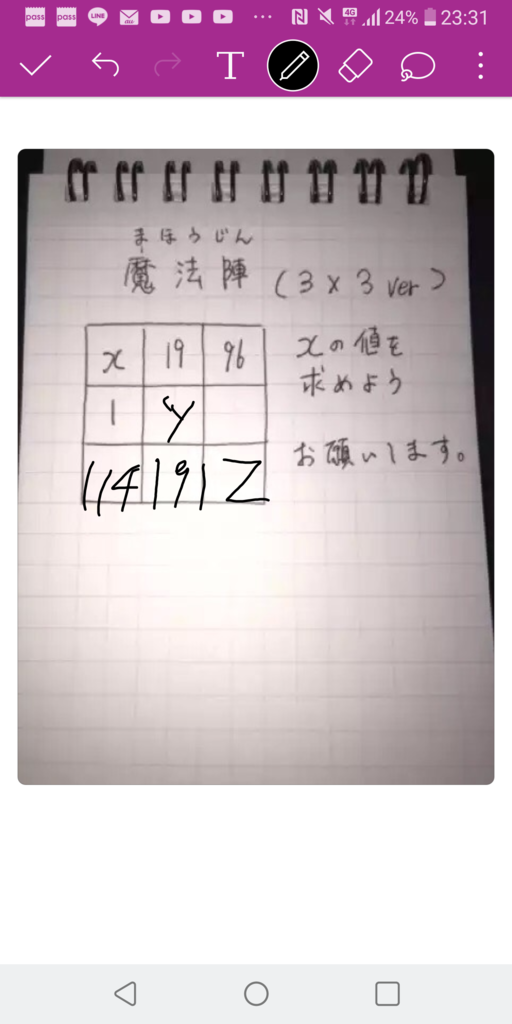 pass pass LINE 4G 24% 23:31
T
まほうじん
魔法陣 (3×3 ver)
x 19 96
xの値を
求めよう
1 y
114 191 Z
お願いします。